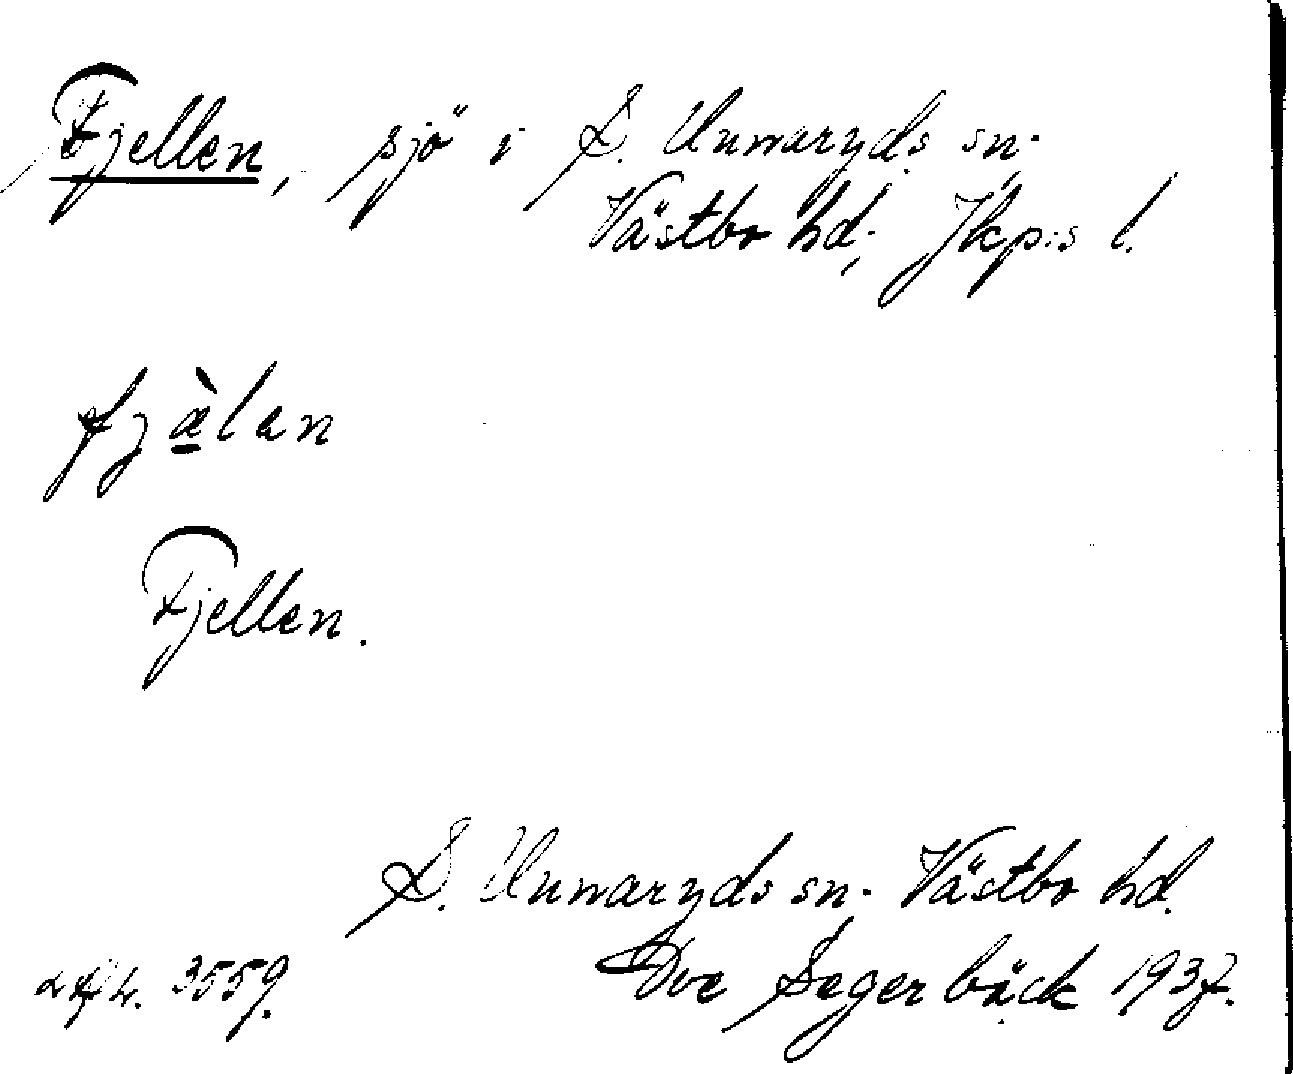 Fjellen, sjö i S. Unnaryds sn;
Västbo hd; Jkp:s l.
fjæ̀lan
Fjellen.
S. Unnaryds sn; Västbo hd.
3559. Ove Segerbäck 1937.